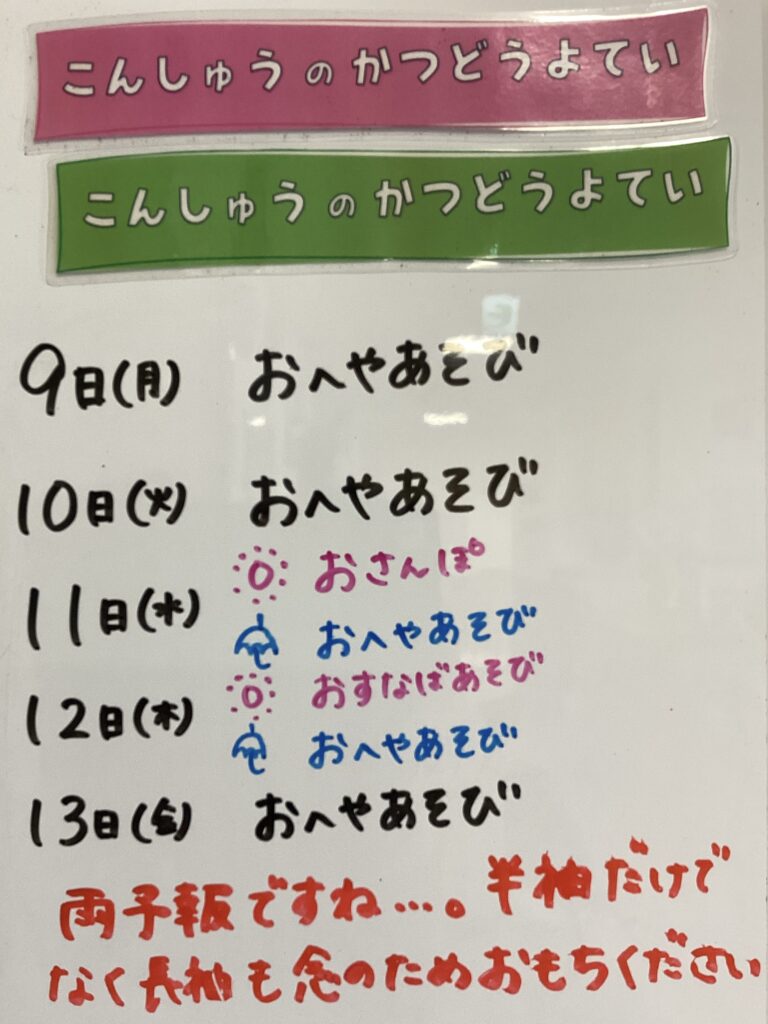 こんしゅうのかつどうよてい
こんしゅうのかつどうよてい
9日(月) おへやあそび
10日(火) おへやあそび
おさんぽ
11日(水)
おへやあそび
おすなばあそび
12日(木)
おへやあそび
13日(金) おへやあそび
雨予報ですね…。半袖だけで
なく長袖も念のためおもちください